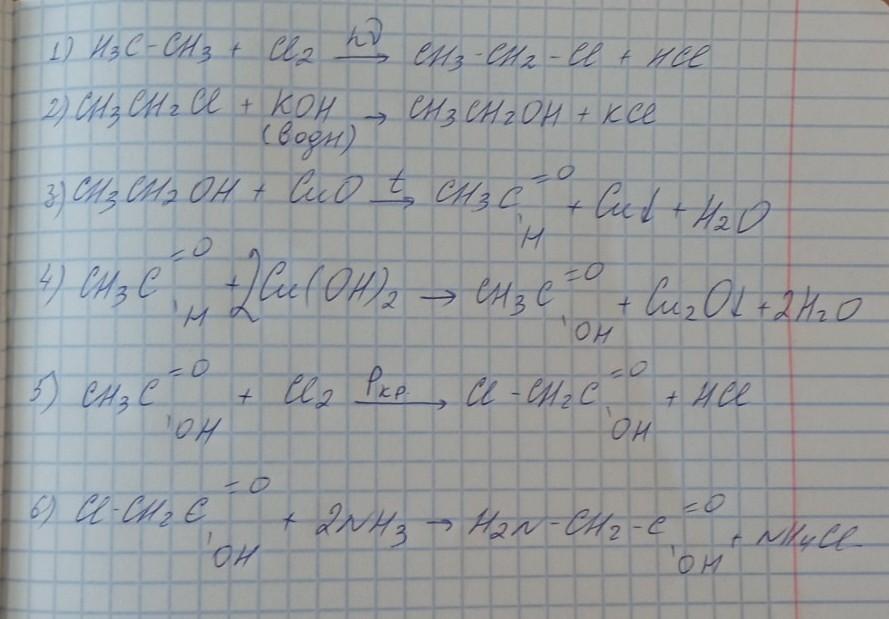 1) H3C-CH3 + Cl2 hν → CH3-CH2-Cl + HCl
2) CH3CH2Cl + KOH → CH3CH2OH + KCl
(водн)
3) CH3CH2OH + CuO t → CH3C=O 'H + Cu↓ + H2O
4) CH3C=O 'H + 2Cu(OH)2 → CH3C=O 'OH + Cu2O↓ + 2H2O
5) CH3C=O 'OH + Cl2 Pкр. → Cl-CH2C=O 'OH + HCl
6) Cl-CH2C=O 'OH + 2NH3 → H2N-CH2-C=O 'OH + NH4Cl